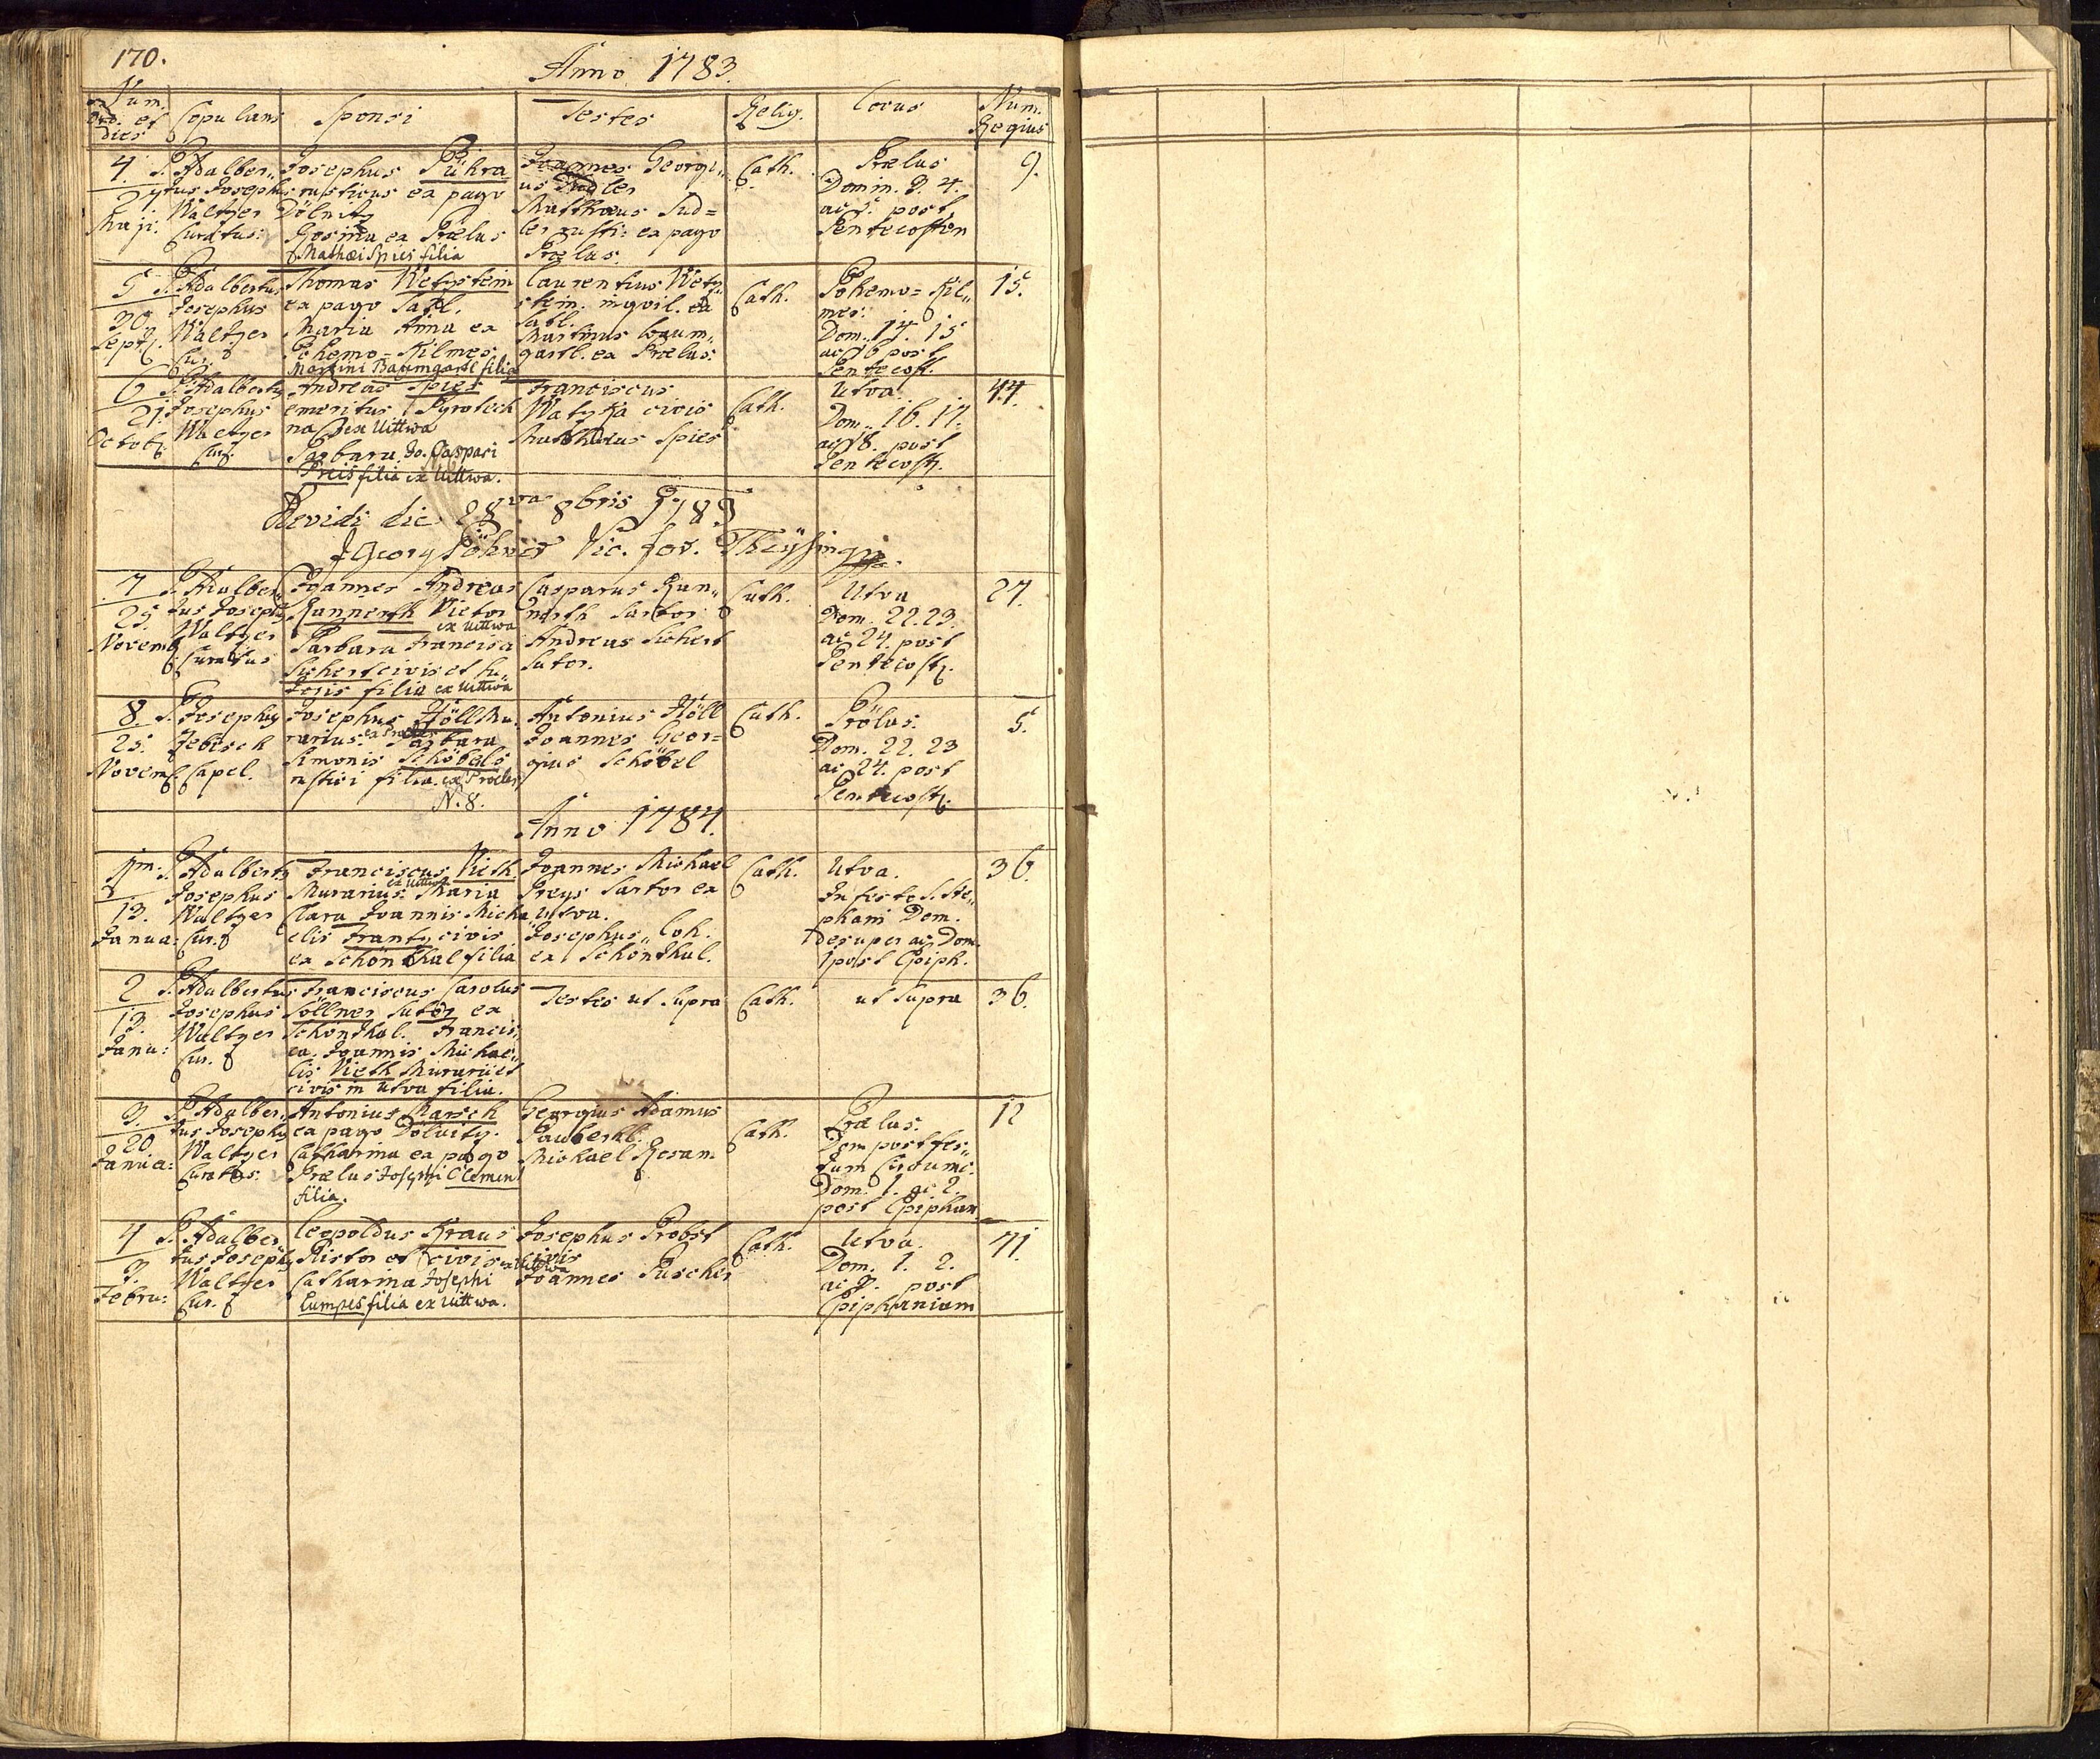 170.
Anno 1783.
Num. ord. et dies
Copulans
Sponsi
Testes
Relig.
Locus
Num. Regius
4.
Maji.
P. Adalber„
tus Josephus
Waltzer
Curatus.
Josephus Pühra
rusticus ex pago
Dölnitz
Rosina ex Prælus
Mathæi Spies filia
Joannes Georgi„
us Sudler
Matthæus Sud=
ler rusti: ex pago
Prælus.
Cath.
Prælus
Domin. 3. 4.
ac 5. post
Pentecosten
9.
5
30.
Septb.
P. Adalbertus
Josephus
Waltzer
Cur.
Thomas Wetzstein
ex pago Satl.
Maria Anna ex
Bohemo=Kilmes
Martini Baumgartl filia
Laurentius Wetz„
stein inquil. ex
Satl.
Martinus Baum„
gartl. ex Prælus.
Cath.
Bohemo=Kil„
mes.
Dom. 14. 15
ac 16 post
Pentecost.
15.
6
21.
Octob.
P. Adalbertus
Josephus
Waltzer
Cur.
Andreas Spies
emeritus Pyrotech
na ex Uittwa
Barbara. Jo. Caspari
Preis filia ex Uittwa.
Franciscus
Watzka civis
Matthæus Spies
Cath.
Utva.
Dom. 16. 17.
ac 18. post
Pentecost.
44.
Revidi die 28va 8bris 1783
J Georg Pöhner Vic. for. Theysing
7
25.
Novemb.
P. Adalber„
tus Josephus
Waltzer
Curatus
Joannes Andreas
Kannerth Vietor
ex Uittwa
Barbara Francisci
Sichert civis et su„
toris filia ex Uittwa
Casparus Kan„
nerth Sartor
Andreas Sichert
Sutor.
Cath.
Utva
Dom. 22. 23.
ac 24. post
Pentecost.
27.
8.
25.
Novemb.
P. Josephus
Jebisch
Capel.
Josephus Höll Mu„
rarius. Barbara
Simonis Schöbels
rustici filia. ex Prælus
N. 8.
Antonius Höll
Joannes Geor=
gius Schöbel
Cath.
Prölas.
Dom. 22. 23
ac 24. post
Pentecost.
5.
Anno 1784.
1m:
13.
Janua:
P. Adalbertus
Josephus
Waltzer
Cur.
Franciscus Vieth
ex Uittwa
Murarius. Maria
Clara Joannis Micha
elis Frantz civis
ex Schönthal filia
Joannes Michael
Preys Sartor ex
Utva.
Josephus Loh.
ex Schönthal.
Cath.
Utva.
In festo S. Ste„
phani Dom.
desuper ac Dom.
1 post Epiph.
36.
2
13.
Janu:
P. Adalbertus
Josephus
Waltzer
Cur.
Franciscus Carolus
Söllner Sutor ex
Schönthal. Francis„
ca. Joannis Michae„
lis Vieth Murarii et
civis in Utva filia.
Testes ut Supra
Cath.
ut Supra
36.
3.
20
Janua:
P. Adalber„
tus Josephus
Waltzer
Curatus.
Antonius Marsch
ex pago Dölnitz.
Catharina ex pago
Prælus Josephi Clement
filia.
Georgius Adamus
Tauberhl.
Michael Rosam
Cath.
Prælus.
Dom post fes„
tum Circumc.
Dom. 1. ac 2.
post Epiphan
12
4
3.
Febru:
P. Adalber
tus Josephus
Waltzer
Cur.
Leopoldus Kraus
Pistor et civis ex Uittwa
Catharina Josephi
Lumpes filia ex Uittwa.
Josephus Probst
civis
Joannes Püscher
Cath.
Utva.
Dom. 1. 2.
ac 3. post
Epiphaniam
71.